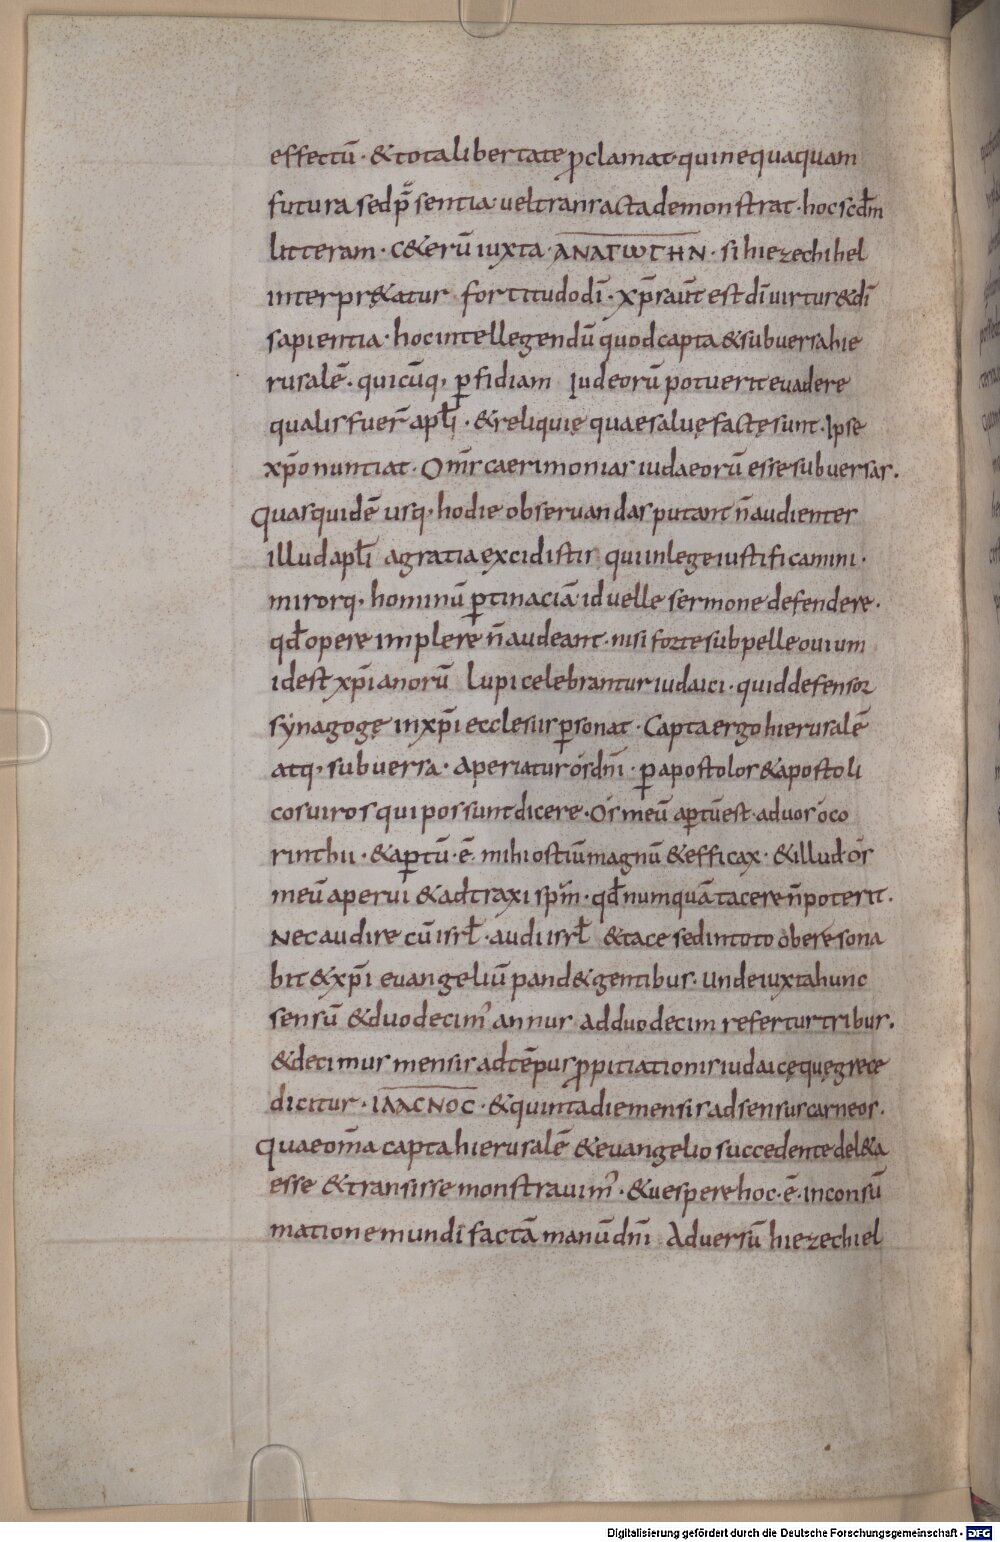 effectū · & tota libertate ꝓclamat · qui nequaquam
futura sed p̄sentia · vel transacta demonstrat · hoc scd̄m
litteram · C&erū iuxta · ΑΝΑΓωΓΗΝ · si hiezechihel
interpr&atur fortitudo dī · xp̄s aūt est dī virtus & dī
sapientia · hoc intellegendū quod capta & subversa hie
rusalē · quicūq, ꝑfidiam Iudeorū potuerit evadere
qualis fuer̄ apłi · & reliquię quae salvę factę sunt · Ipse
xp̄o nuntiat · Om̄s caerimonias iudaeorū esse subversas .
Quas quidē usq, hodie observandas putant n̄ audientes
illud apłi a gratia excidistis qui in lege iustificamini ·
mirorq, hominū ꝑtinaciā id velle sermone defendere ·
qđ opere implere n̄ audeant · nisi forte sub pelle ovium
id est xp̄ianorū lupi celebrantur iudaici · quid defensor
synagogę in xp̄i ecclesiis ꝑsonat · Capta ergo hierusalē
atq, subversa · aperiatur ós dn̄i · ꝑ apostolos & apostoli
cos viros qui possunt dicere · Ós meū aꝑtū est · ad vos ó co
rinthii · & aꝑtū · ē · mihi ostiū magnū & efficax · & illud · ós
meū aperui & adtraxi sp̄m · qđ numquā tacere n̄ poterit .
Nec audire cū isrł · audi isrł & tace sed in toto obere sona
bit & xp̄i evangeliū pand& gentibus · unde iuxta hunc
sensū & duodecim' annus ad duodecim refertur tribus .
& decimus mensis ad tēpus ꝓpitiationis iudaicę quę grece
dicitur · ΙΛΑСΝΟС · & quinta die mensis ad sensus carneos .
Quae om̄a capta hierusalē & evangelio succedente del&a
esse & transisse monstravim' · & vespere hoc · ē · in consū
matione mundi factā manū dn̄i Adversū hiezechiel
Digitalisierung gefördert durch die Deutsche Forschungsgemeinschaft - DFG